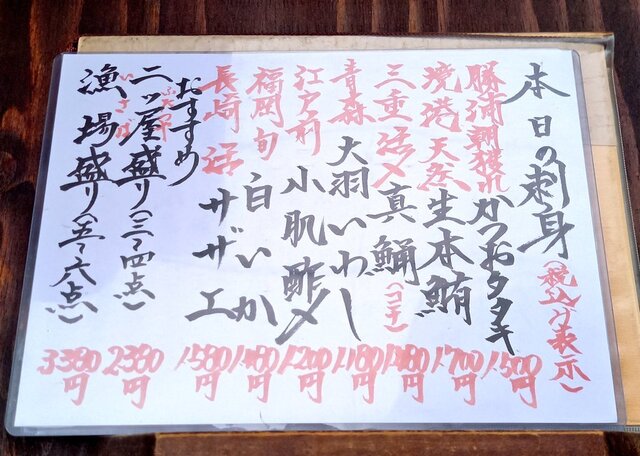 本日の刺身(税込み表示)
勝浦朝獲れかつおタタキ 1,500円
境港天然生本鮪 1,700円
三重活〆真鯒(コチ) 1,180円
青森大羽いわし 1,180円
江戸前小肌酢〆 1,200円
福岡旬白いか 1,480円
長崎活サザエ 1,580円
おすすめ
二ッ屋盛り(三〜四点) 2380円
いさば
漁場盛り(五〜六点) 3380円